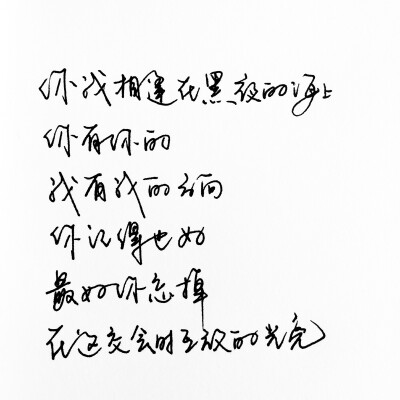 你我相逢在黑夜的海上
你有你的
我有我的方向
你记得也好
最好你忘掉
在这交会时互放的光亮